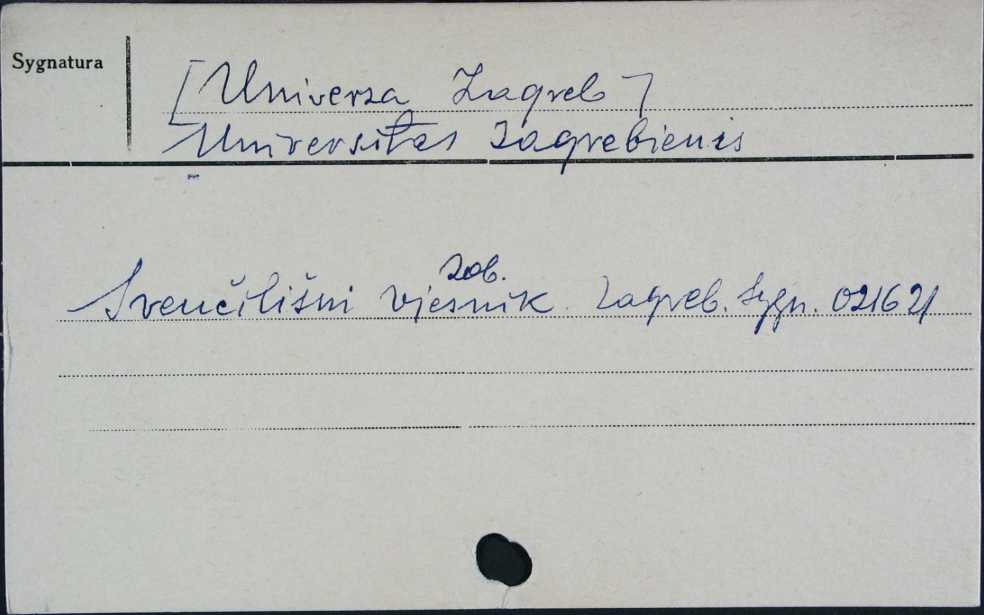 Sygnatura
[Univerza Zagreb]
Universitas Zagrebiensis
zob.
Sveučilišni vjesnik. Zagreb. Sygn. 021621